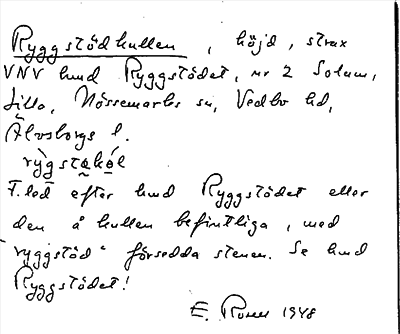 Ryggstödkullen, höjd, strax
VNV hmd Ryggstödet, nr 2 Solum,
Lilla, Nössemarks sn, Vedbo hd,
Älvsborgs l.
F.led efter hmd Ryggstödet eller
den å kullen befintliga, med
"ryggstöd" försedda stenen. Se hmd
Ryggstödet!
E. Rosell 1948